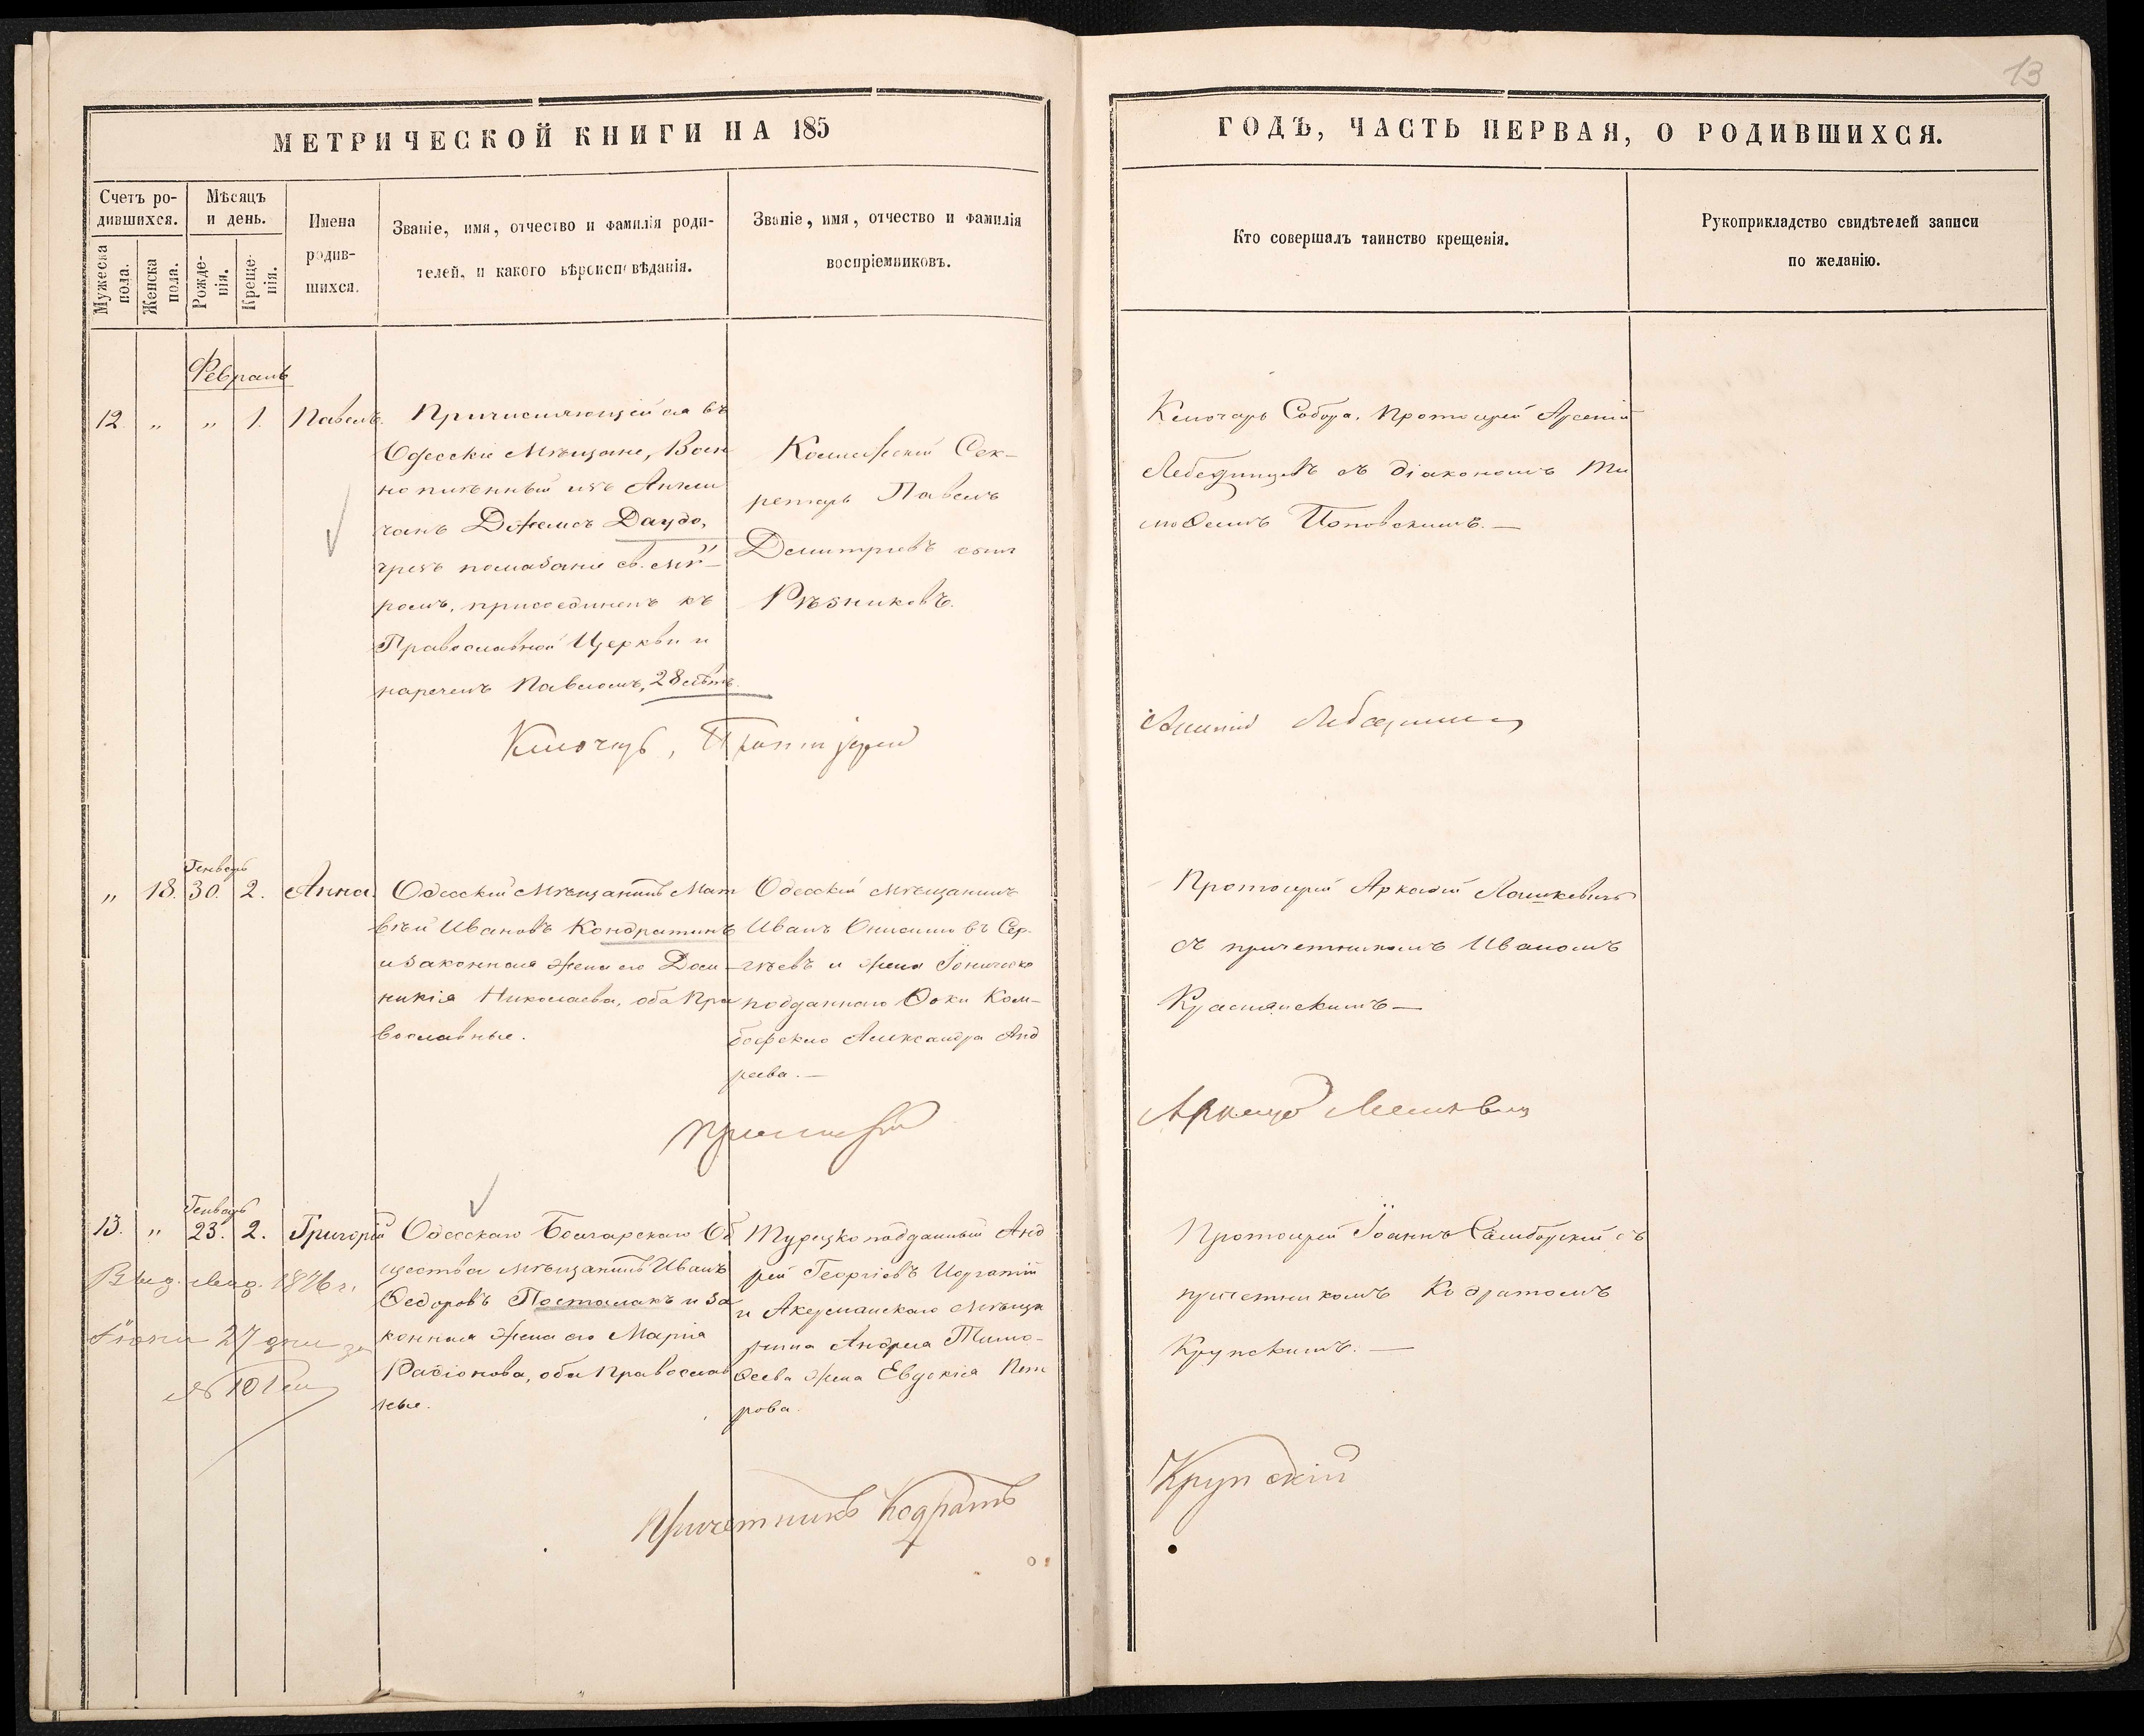 13
МЕТРИЧЕСКОЙ КНИГИ НА 185
ГОДЪ, ЧАСТЬ ПЕРВАЯ, О РОДИВШИХСЯ.
Счетъ ро-
дившихся.
Мужеска
пола.
Женска
пола.
Мѣсяцъ
и день.
Рожде-
нія.
Креще-
нія.
Имена
родив-
шихся.
Званіе, имя, отчество и фамилія роди-
телей, и какого вѣроисповѣданія.
Званіе, имя, отчество и фамилія
воспріемниковъ.
Кто совершалъ таинство крещенія.
Рукоприкладство свидѣтелей записи
по желанію.
Февраль
12. " " 1. Павелъ.
Причисляющійся въ
Одесскіе Мѣщане, Воен
но плѣнный изъ Англи
чанъ Джемсъ Даудо,
чрезъ помазаніе св. мѵ
ромъ, присоединенъ къ
Православной Церкви и
нареченъ Павломъ, 28 лѣтъ.
Коллежскій Сек-
ретарь Павелъ
Димитріевъ сынъ
Рѣзниковъ.
Ключарь Собора, Протоіерей Арсеній
Лебединцевъ съ діакономъ Ти
моѳеемъ Поповскимъ. —
Ключарь, Протоіерей
Арсеній Лебединцевъ
Генварь
" 18. 30. 2. Анна.
Одесскій Мѣщанинъ Мат
вѣй Ивановъ Кондратинъ
и законная жена его Дом
никія Николаева, оба Пра
вославные.
Одесскій мѣщанинъ
Иванъ Онисимовъ Сер-
гѣевъ и жена Іоническо
подданнаго Фоки Ком-
Александра Анд
реева. —
Протоіерей Аркадій Лашкевичъ
съ причетникомъ Иваномъ
Краснянскимъ —
Протоіерей
Аркадій Лашкевичъ
Генварь
13. " 23. 2. Григорій
Выд. Мид. 1876 г.
Іюня 27 дня за
№ 101
Одесскаго Болгарскаго Об
щества мѣщанинъ Иванъ
Ѳедоровъ Постолакъ и за
конная жена его Марія
Радіонова, оба Православ
ные.
Турецкоподданный Анд
рей Георгіевъ
и Акерманскаго мѣща
нина Андрея Тимо-
ѳеева жена Евдокія Пет
рова.
Протоіерей Іоаннъ Самборскій съ
причетникомъ Кодратомъ
Крупскимъ. —
Причетникъ Кодратъ
Крупскій